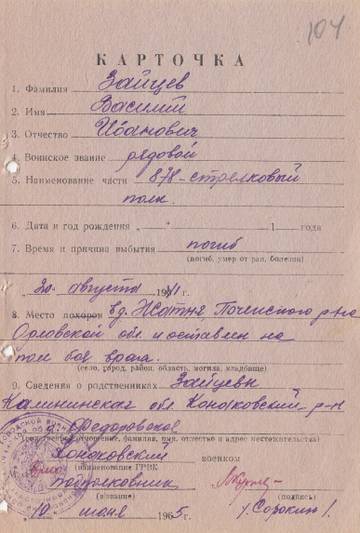 104
КАРТОЧКА
1. Фамилия Зайцев
2. Имя Василий
3. Отчество Иванович
4. Воинское звание рядовой
5. Наименование части 878-стрелковый
полк.
6. Дата и год рождения „ “ 1 года
7. Время и причина выбытия погиб
(погиб, умер от ран, болезни)
20 августа 1941г.
8. Место похорон в д. Жатня Поченского р-на
Орловской обл. и оставлен на
поле боя врага.
(село, город, район, область, могила, кладбище)
9. Сведения о родственниках Зайцевы
Калининская обл. Конаковский р-н
д. Федоровское
(родственное отношение, фамилия, имя, отчество и адрес местожительства)
Конаковский военком
(наименование ГРВК)
подполковник
(звание) (подпись)
„10“ июня 1965г. / Сорокин /